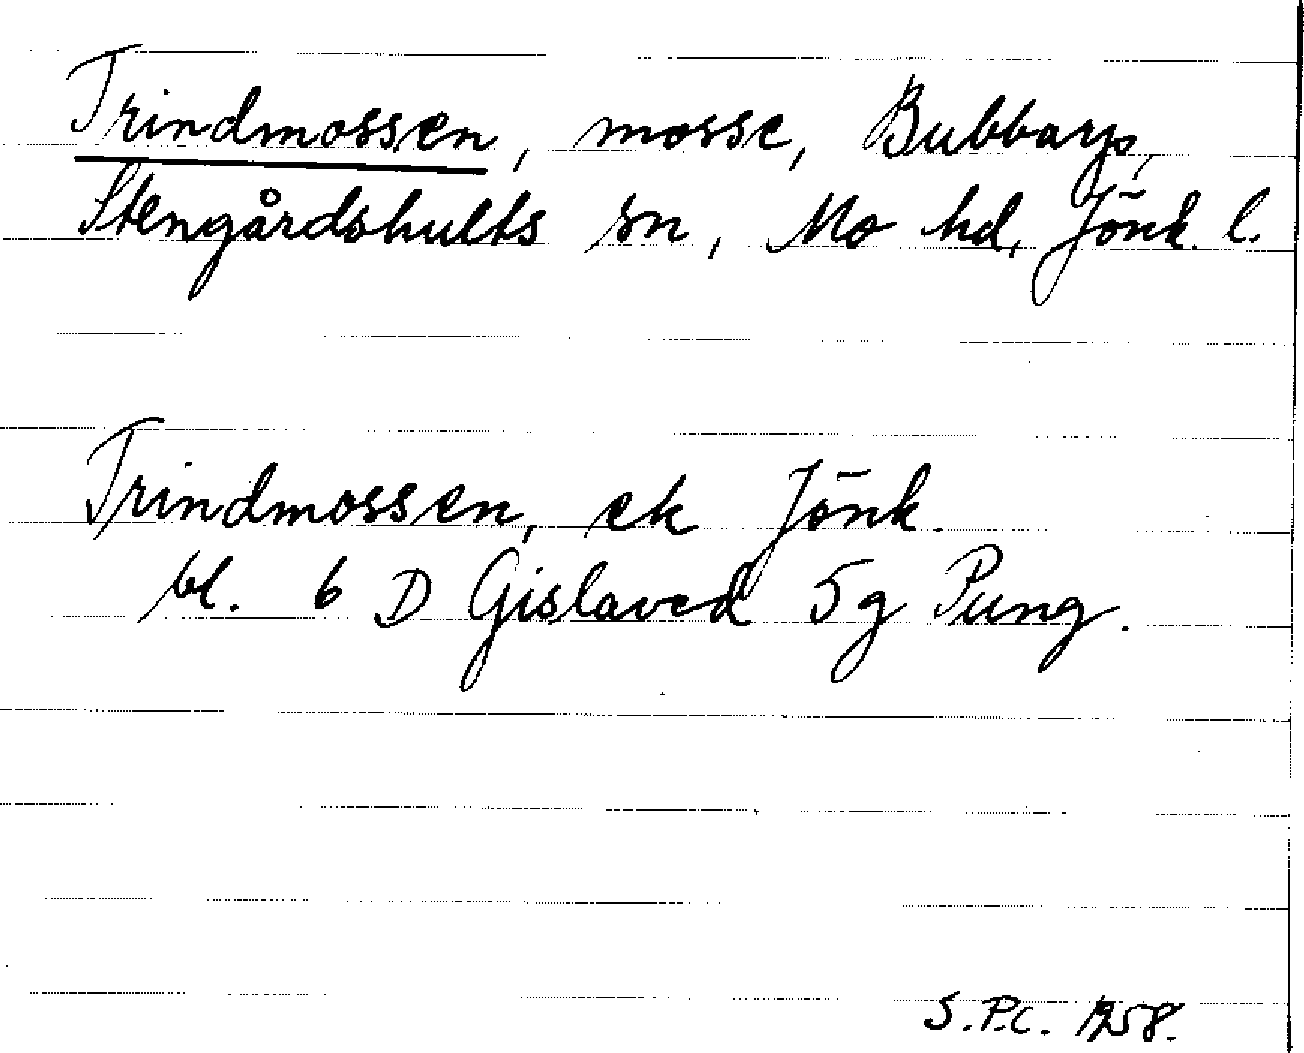 Trindmossen, mosse, Bubbarp,
Stengårdshults sn, Mo hd, Jönk. l.
Trindmossen, ek Jönk.
bl. 6 D Gislaved 5g Pung.
S.P.C. 1958.